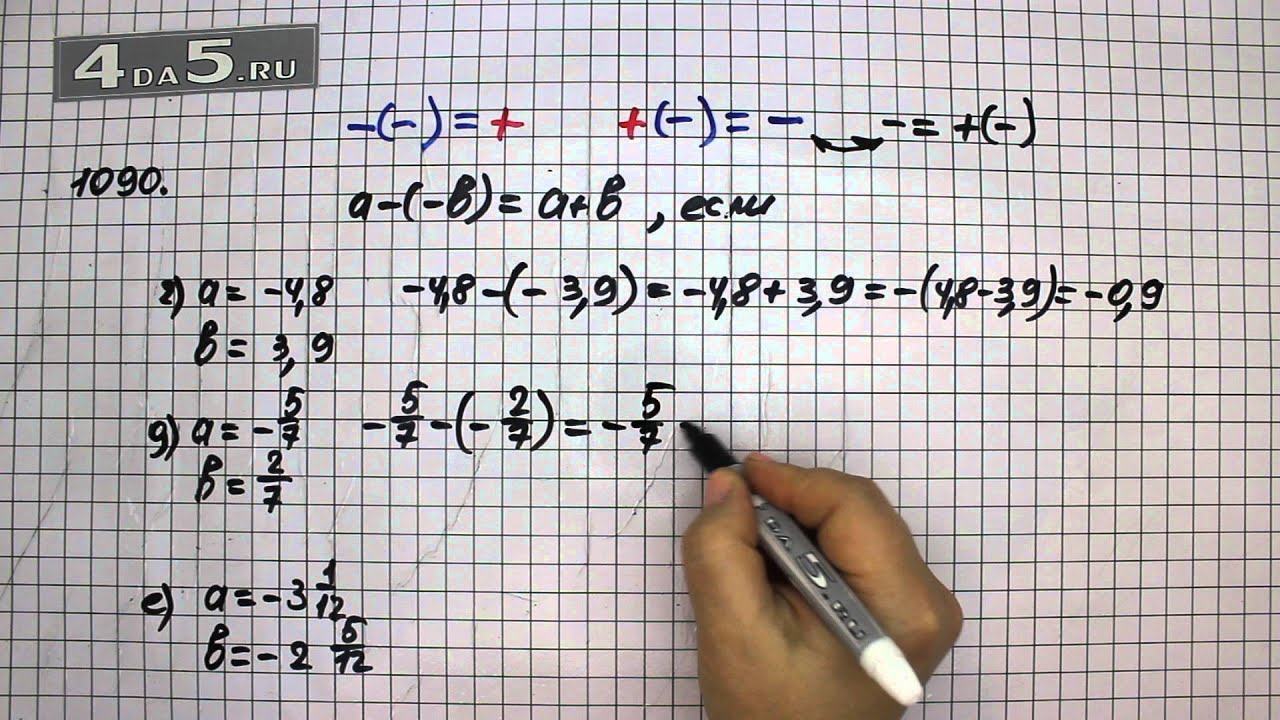 4DA5.RU
-(-) = + +(-) = - - = +(-)
1090.
a-(-в) = a+в , если
г) a = -4,8 -4,8 -(- 3,9) = -4,8 + 3,9 = -(4,8-3,9) = -0,9
в = 3,9
g) a = - 5/7 - 5/7 -(- 2/7) = - 5/7
в = 2/7
е) a = -3 1/12
в = -2 5/12
DA5.RU